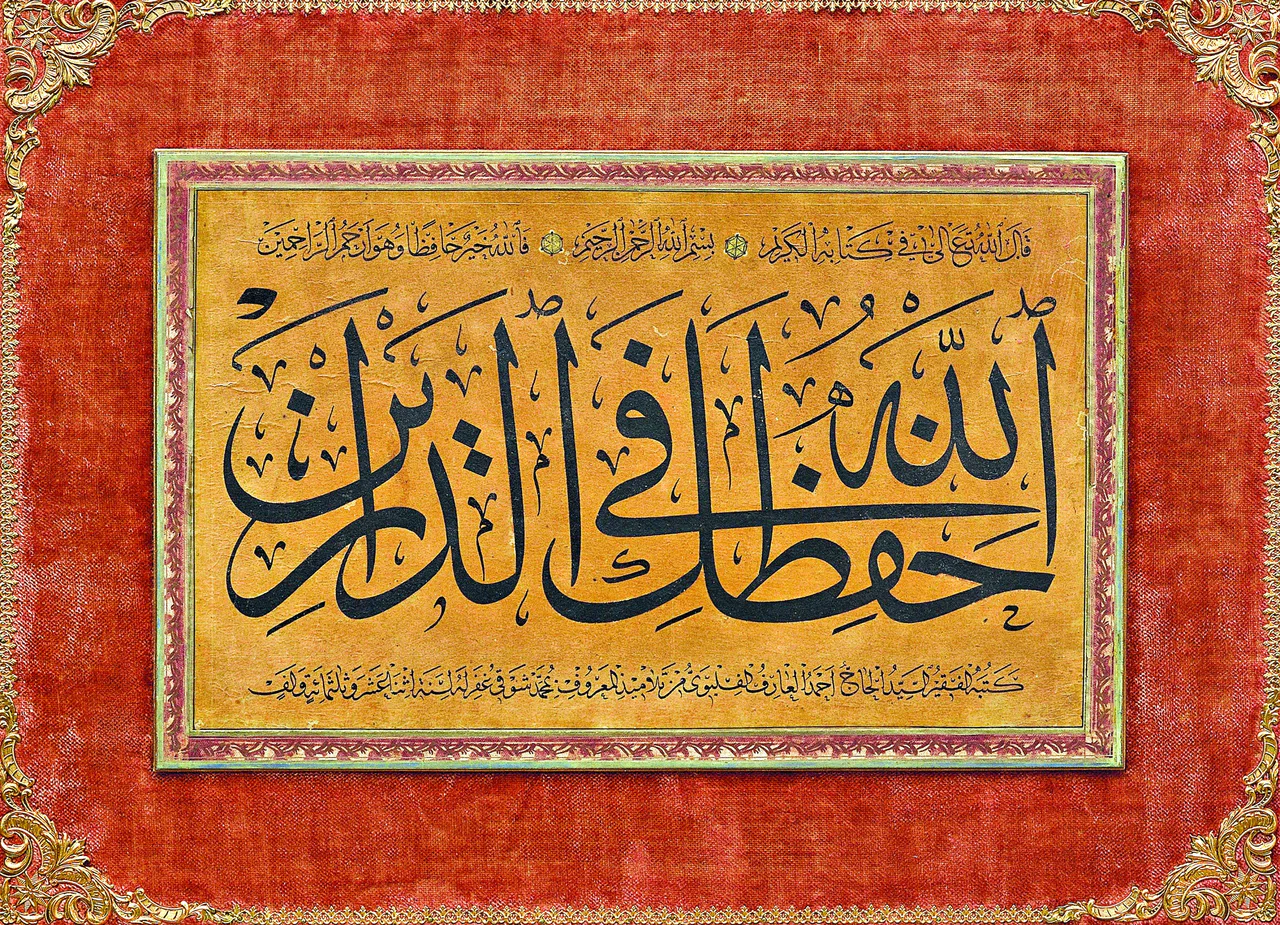 قال الله تعالى في كتابه الكريم بسم الله الرحمن الرحيم فالله خير حافظا وهو أرحم الراحمين
الله حفظك في الدارين
كتبه الفقير السيد الحاج أحمد العارف الفلبوي من تلاميذ المعروف بمحمد شوقي غفر له لسنة اثنا عشر وثلثمائة وألف